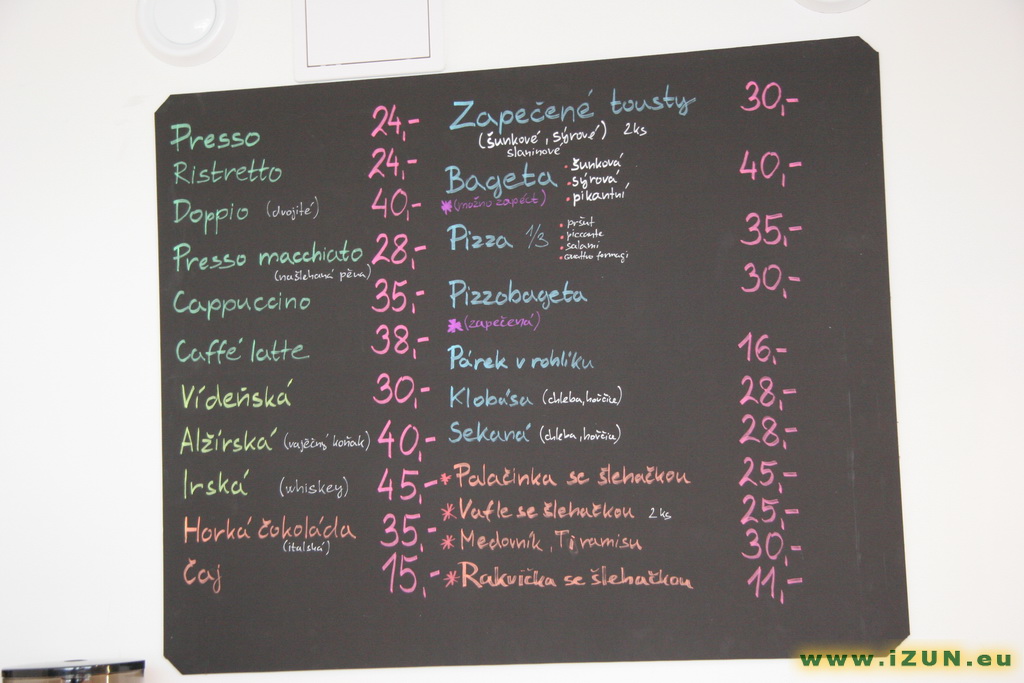 Presso 24,-
Ristretto 24,-
Doppio (dvojité) 40,-
Presso macchiato 28,-
(našlehaná pěna)
Cappuccino 35,-
Caffé latte 38,-
Vídeňská 30,-
Alžírská (vaječný koňak) 40,-
Irská (whiskey) 45,-
Horká čokoláda 35,-
(italská)
Čaj 15,-
Zapečené tousty 30,-
(šunkové, sýrové) 2ks
slaninové
Bageta 40,-
• šunková
• sýrová
• pikantní
* (možno zapéct)
Pizza 1/3 35,-
• pršut
• piccante
• salami
• quattro formagi
Pizzobageta 30,-
* (zapečená)
Párek v rohlíku 16,-
Klobása (chleba, hořčice) 28,-
Sekaná (chleba, hořčice) 28,-
* Palačinka se šlehačkou 25,-
* Vafle se šlehačkou 2ks 25,-
* Medovník, Tiramisu 30,-
* Rakvička se šlehačkou 11,-
www.iZUN.eu